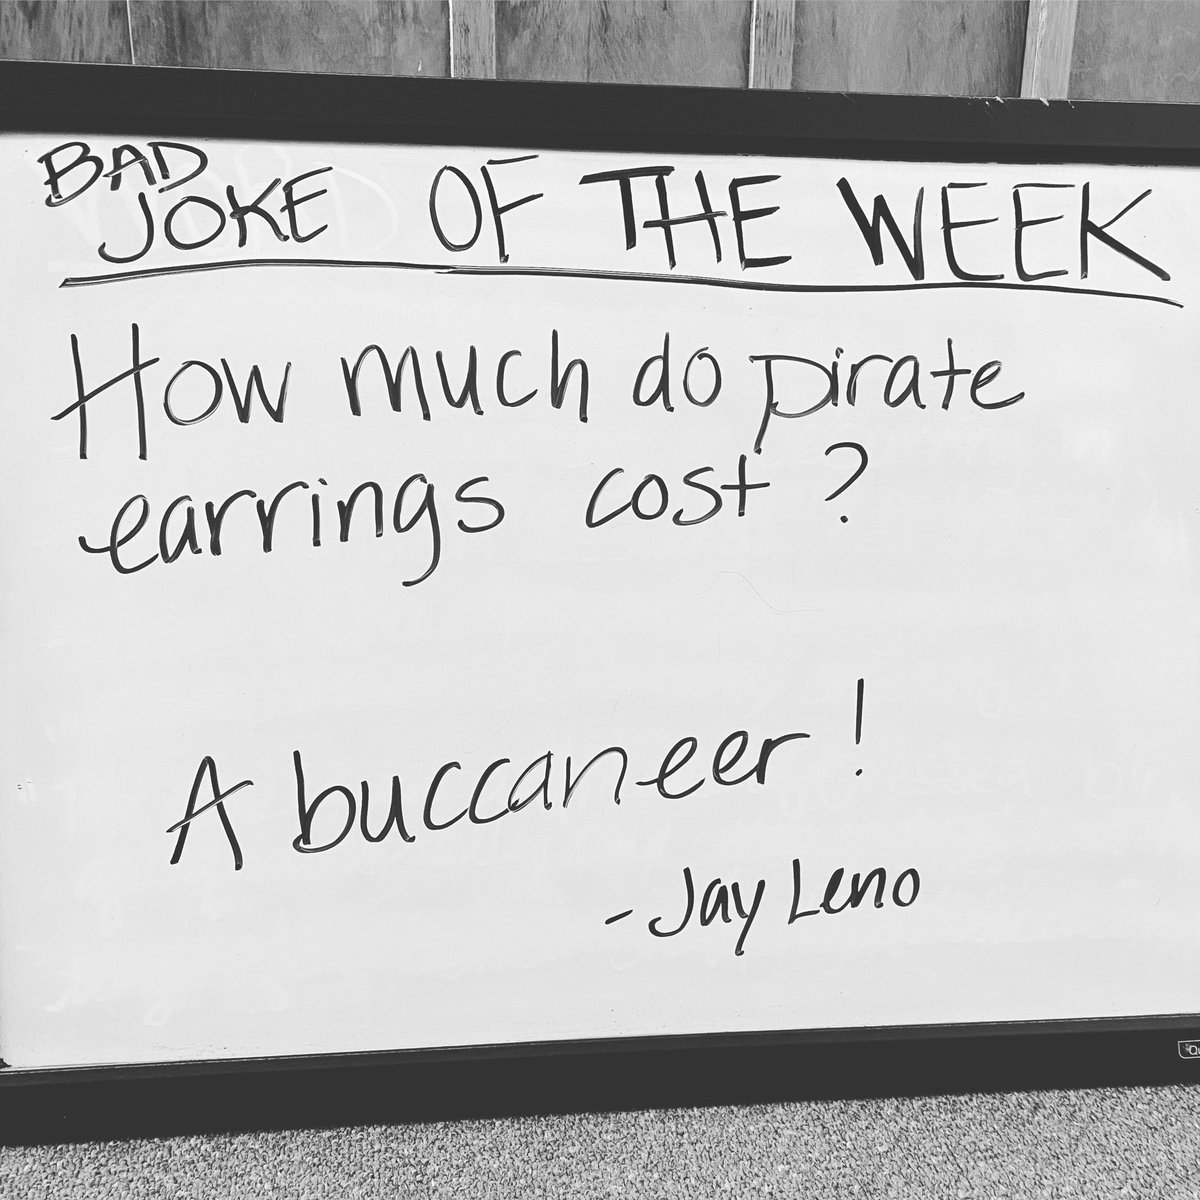 BAD
JOKE OF THE WEEK
How much do pirate
earrings cost?
A buccaneer!
- Jay Leno